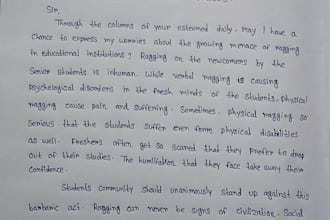 Sir,
Through the columns of your esteemed daily, May I have a
chance to express my worries about the growing menace of ragging
in educational institutions? Ragging on the newcomers by the
Senior students is inhuman. While verbal ragging is causing
psychological disorders in the fresh minds of the students, physical
ragging cause pain and suffering. Sometimes, physical ragging so
serious that the students suffer even form physical disabilities
as well. Freshers often get so scared that they prefer to drop
out of their studies. The humiliation that they face take away their
confidence.
Students community should unanimously stand up against this
barbaric act. Ragging can never be signs of civilization. Social